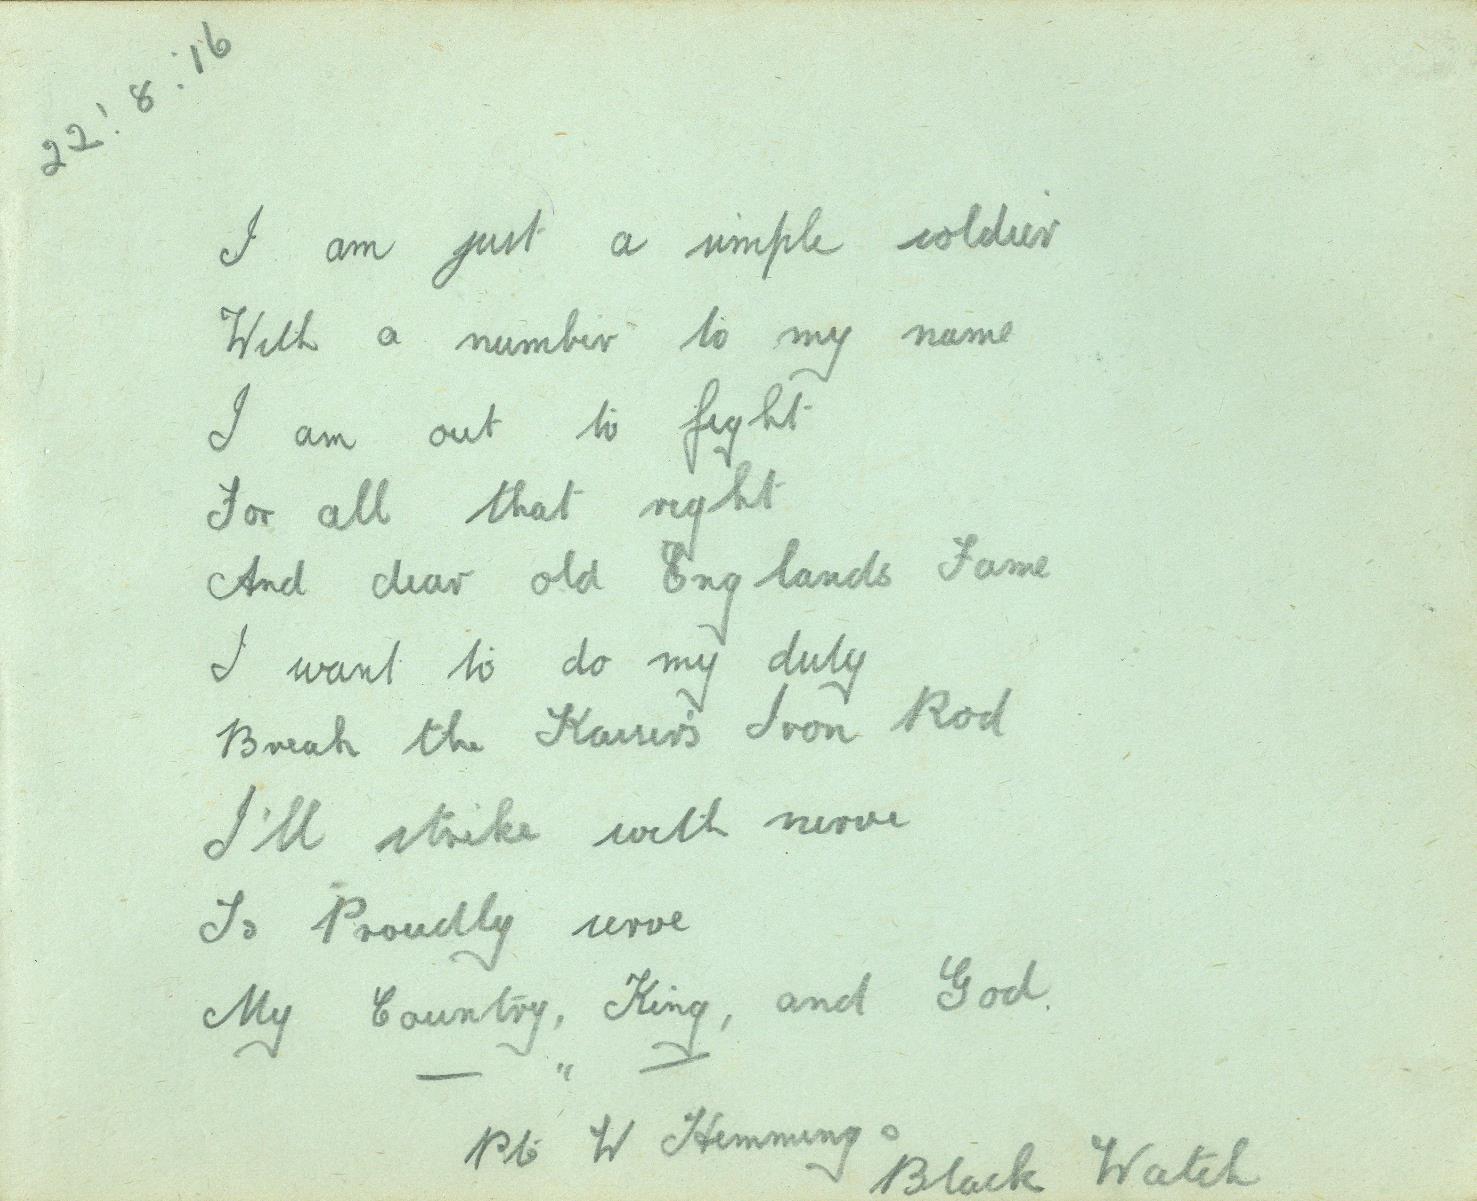 22! 8 : 16
I am just a simple soldier
With a number to my name
I am out to fight
For all that right
And dear old Englands Fame
I want to do my duty
Break the Kaiser's Iron Rod
I'll strike with nerve
To Proudly serve
My Country, King, and God.
— " —
Pte W Hemming
Black Watch